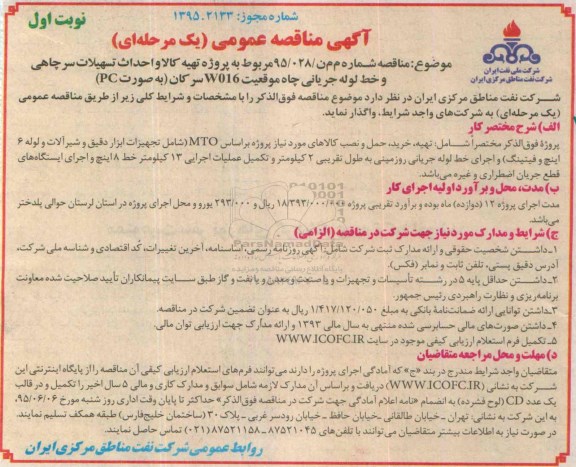 شماره مجوز: ۱۳۹۵.۲۱۳۳
نوبت اول
آگهی مناقصه عمومی (یک مرحله‌ای)
شرکت ملی نفت ایران
شرکت نفت مناطق مرکزی ایران
موضوع: مناقصه شماره م‌م‌ن/۹۵/۰۲۸ مربوط به پروژه تهیه کالا و احداث تسهیلات سرچاهی
و خط لوله جریانی چاه موقعیت W016 سرکان (به صورت PC)
شرکت نفت مناطق مرکزی ایران در نظر دارد موضوع مناقصه فوق‌الذکر را با مشخصات و شرایط کلی زیر از طریق مناقصه عمومی
(یک مرحله‌ای) به شرکت‌های واجد شرایط، واگذار نماید.
الف) شرح مختصر کار
پروژهٔ فوق‌الذکر مختصراً شامل: تهیه، خرید، حمل و نصب کالاهای مورد نیاز پروژه براساس MTO (شامل تجهیزات ابزار دقیق و شیرآلات و لوله ۶
اینچ و فیتینگ) و اجرای خط لوله جریانی روزمینی به طول تقریبی ۲ کیلومتر و تکمیل عملیات اجرایی ۱۳ کیلومتر خط ۸ اینچ و اجرای ایستگاه‌های
قطع جریان اضطراری و غیره می‌باشد.
ب) مدت، محل و برآورد اولیه اجرای کار
مدت اجرای پروژه ۱۲ (دوازده) ماه بوده و برآورد تقریبی پروژه ۱۸/۳۹۳/۰۰۰/۰۰۰ ریال و ۲۹۳/۰۰۰ یورو و محل اجرای پروژه در استان لرستان حوالی پلدختر
می‌باشد.
ج) شرایط و مدارک مورد نیاز جهت شرکت در مناقصه (الزامی)
۱ـ داشتن شخصیت حقوقی و ارائه مدارک ثبت شرکت شامل: آگهی روزنامه رسمی، اساسنامه، آخرین تغییرات، کُد اقتصادی و شناسه ملی شرکت،
آدرس دقیق پستی، تلفن ثابت و نمابر (فکس).
۲ـ داشتن حداقل پایه ۵ در رشته تأسیسات و تجهیزات و یا صنعت و معدن و یا نفت و گاز طبق سایت پیمانکاران تأیید صلاحیت شده معاونت
برنامه‌ریزی و نظارت راهبردی رئیس جمهور.
۳ـ داشتن توانایی ارائه ضمانت‌نامه بانکی به مبلغ ۱/۴۱۷/۱۲۰/۰۵۰ ریال به عنوان تضمین شرکت در مناقصه.
۴ـ داشتن صورت‌های مالی حسابرسی شده منتهی به سال مالی ۱۳۹۳ و ارائه مدارک جهت ارزیابی توان مالی.
۵ـ تکمیل فرم استعلام ارزیابی کیفی موجود در سایت WWW.ICOFC.IR
د) مهلت و محل مراجعه متقاضیان
متقاضیان واجد شرایط مندرج در بند «ج» که آمادگی اجرای پروژه را دارند می‌توانند فرم‌های استعلام ارزیابی کیفی آن مناقصه را از پایگاه اینترنتی این
شرکت به نشانی (WWW.ICOFC.IR) دریافت و براساس آن مدارک لازمه شامل سوابق و مدارک کاری و مالی ۵ سال اخیر را تکمیل و در قالب
یک عدد CD (لوح فشرده) به انضمام «نامه اعلام آمادگی جهت شرکت در مناقصه فوق‌الذکر» حداکثر تا پایان وقت اداری روز شنبه مورخ ۹۵/۰۶/۰۶
به این شرکت به نشانی: تهران ـ خیابان طالقانی ـ خیابان حافظ ـ خیابان رودسر غربی ـ پلاک ۳۰ (ساختمان خلیج‌فارس) طبقه همکف تسلیم نمایند.
در صورت نیاز به اطلاعات بیشتر متقاضیان می‌توانند با تلفن‌های ۸۷۵۲۱۰۴۵ ـ ۸۷۵۲۱۱۵۸ (۰۲۱) تماس حاصل نمایند.
روابط عمومی شرکت نفت مناطق مرکزی ایران